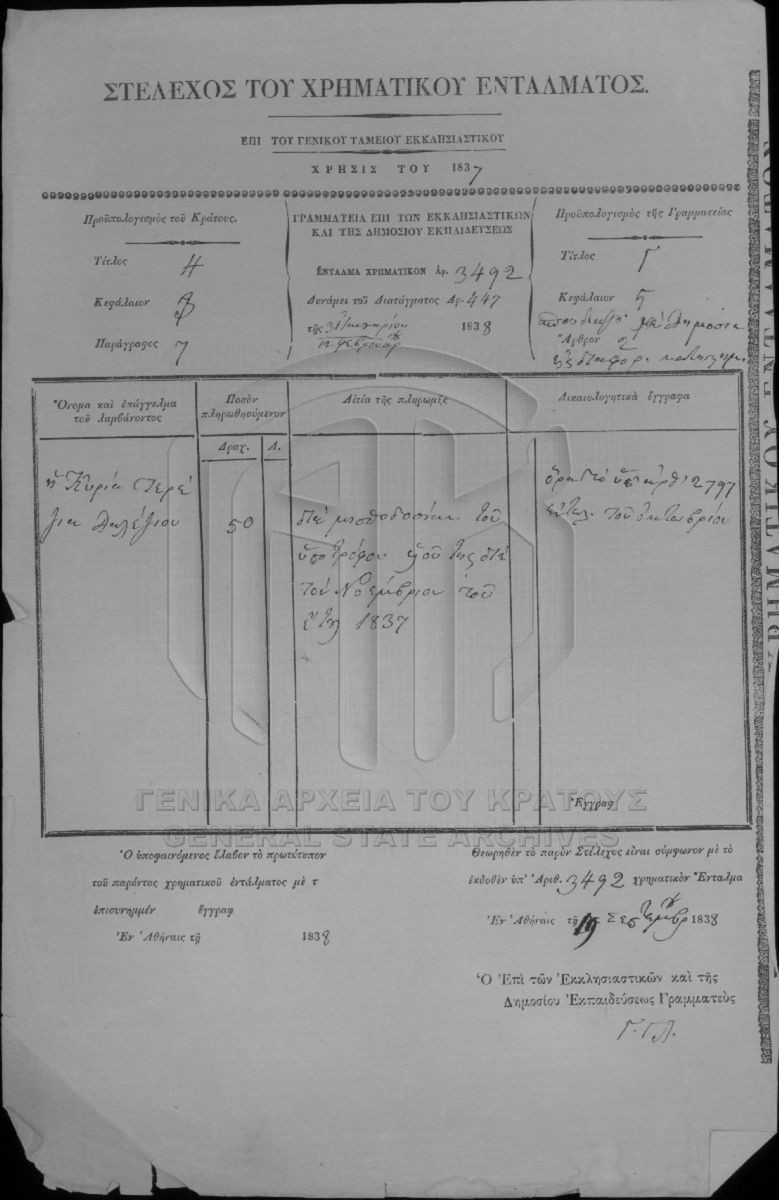 ΣΤΕΛΕΧΟΣ ΤΟΥ ΧΡΗΜΑΤΙΚΟΥ ΕΝΤΑΛΜΑΤΟΣ.
ΕΠΙ ΤΟΥ ΓΕΝΙΚΟΥ ΤΑΜΕΙΟΥ ΕΚΚΛΗΣΙΑΣΤΙΚΟΥ
ΧΡΗΣΙΣ ΤΟΥ 1837
Προϋπολογισμὸς τοῦ Κράτους.
Τίτλος Η
Κεφάλαιον
Παράγραφος 7
ΓΡΑΜΜΑΤΕΙΑ ΕΠΙ ΤΩΝ ΕΚΚΛΗΣΙΑΣΤΙΚΩΝ
ΚΑΙ ΤΗΣ ΔΗΜΟΣΙΟΥ ΕΚΠΑΙΔΕΥΣΕΩΣ
ΕΝΤΑΛΜΑ ΧΡΗΜΑΤΙΚΟΝ Ἀρ. 3492
Δυνάμει τοῦ Διατάγματος Ἀρ. 447
τῆς 31 Ἰανουαρίου 1838
Προϋπολογισμὸς τῆς Γραμματείας
Τίτλος Γ
Κεφάλαιον 5
Ἄρθρον 2
Ὄνομα καὶ ἐπάγγελμα
τοῦ λαμβάνοντος
Ποσὸν
πληρωθησόμενον
Αἰτία τῆς πληρωμῆς
Δικαιολογητικὰ ἔγγραφα
Δραχ. Λ.
ἡ Κυρία
50
διὰ μισθοδοσίαν τοῦ
ὑποτρόφου υἱοῦ της διὰ
τὸν Νοέμβριον τοῦ
ἔτους 1837
ὅρα τὸ ὑπ' ἀρθ. 2797
ἔνταλ. τοῦ Ὀκτωβρίου
Ἔγγραφ
ΓΕΝΙΚΑ ΑΡΧΕΙΑ ΤΟΥ ΚΡΑΤΟΥΣ
GENERAL STATE ARCHIVES
Ὁ ὑποφαινόμενος ἔλαβον τὸ πρωτότυπον
τοῦ παρόντος χρηματικοῦ ἐντάλματος μὲ τ
ἐπισυνημμέν ἔγγραφ
Ἐν Ἀθήναις τῇ 1838
Θεωρηθὲν τὸ παρὸν Στέλεχος εἶναι σύμφωνον μὲ τὸ
ἐκδοθὲν ὑπ' Ἀριθ. 3492 χρηματικὸν Ἔνταλμα
Ἐν Ἀθήναις τῇ 19 Σεπτεμβρ 1838
Ὁ Ἐπὶ τῶν Ἐκκλησιαστικῶν καὶ τῆς
Δημοσίου Ἐκπαιδεύσεως Γραμματεὺς
Γ. ΓΛ.